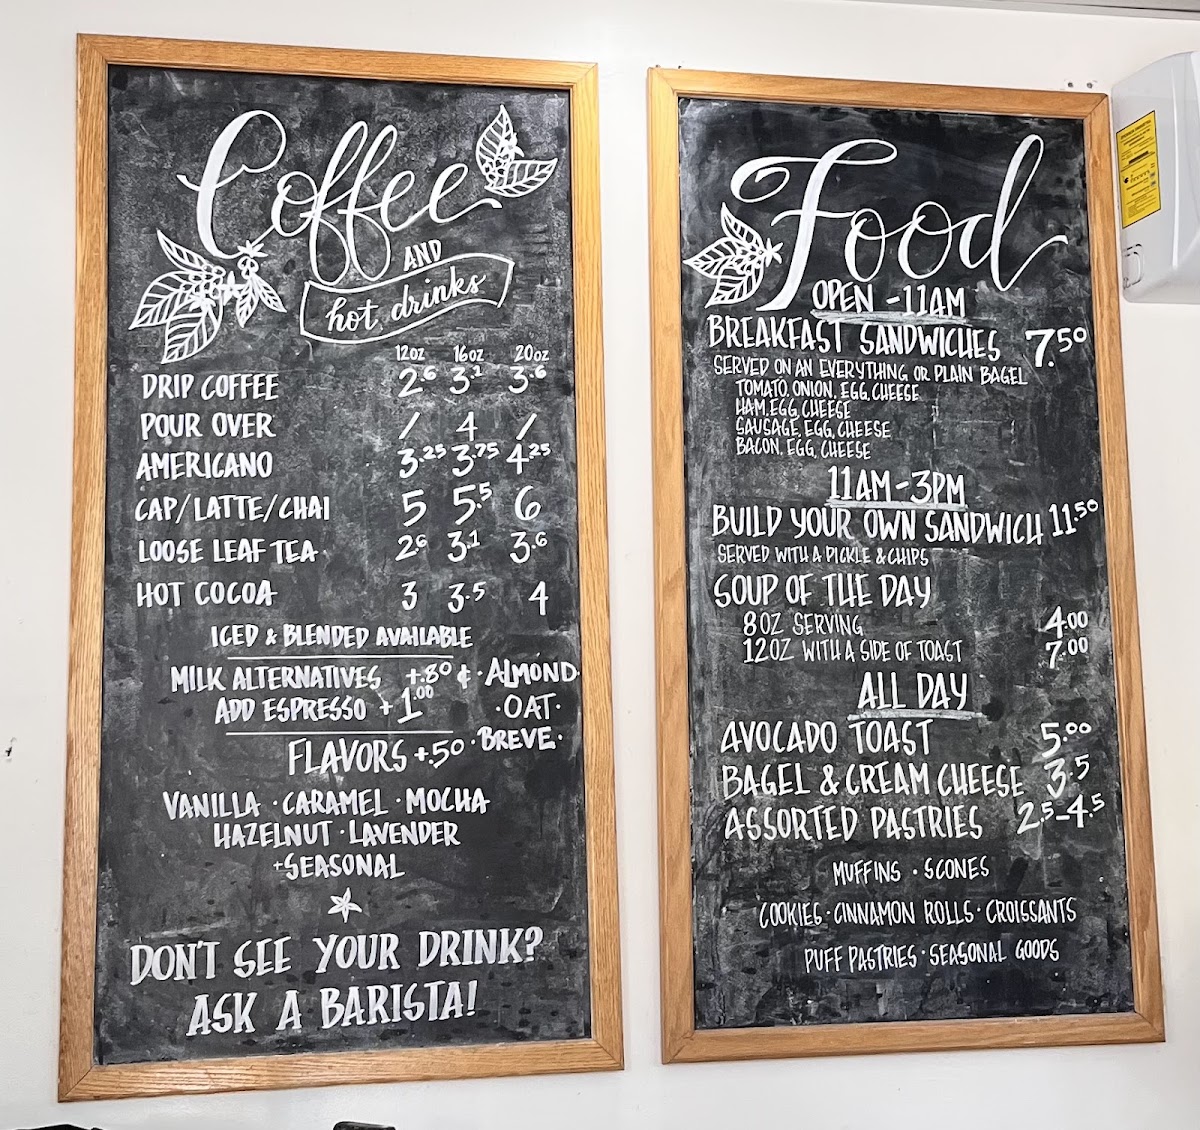 Coffee
AND
hot drinks
12oz 16oz 20oz
DRIP COFFEE 2.6 3.1 3.6
POUR OVER / 4 /
AMERICANO 3.25 3.75 4.25
CAP/LATTE/CHAI 5 5.5 6
LOOSE LEAF TEA 2.6 3.1 3.6
HOT COCOA 3 3.5 4
ICED & BLENDED AVAILABLE
MILK ALTERNATIVES +.80 ¢ · ALMOND
ADD ESPRESSO +1.00 · OAT ·
FLAVORS +.50 · BREVE ·
VANILLA · CARAMEL · MOCHA
HAZELNUT · LAVENDER
+SEASONAL
DON'T SEE YOUR DRINK?
ASK A BARISTA!
Food
OPEN - 11AM
BREAKFAST SANDWICHES 7.50
SERVED ON AN EVERYTHING OR PLAIN BAGEL
TOMATO, ONION, EGG, CHEESE
HAM, EGG, CHEESE
SAUSAGE, EGG, CHEESE
BACON, EGG, CHEESE
11AM - 3PM
BUILD YOUR OWN SANDWICH 11.50
SERVED WITH A PICKLE & CHIPS
SOUP OF THE DAY
8OZ SERVING 4.00
12OZ WITH A SIDE OF TOAST 7.00
ALL DAY
AVOCADO TOAST 5.00
BAGEL & CREAM CHEESE 3.5
ASSORTED PASTRIES 2.5-4.5
MUFFINS · SCONES
COOKIES · CINNAMON ROLLS · CROISSANTS
PUFF PASTRIES · SEASONAL GOODS